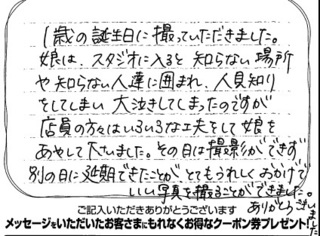 1歳の誕生日に撮っていただきました。
娘は、スタジオに入ると知らない場所
や知らない人達に囲まれ、人見知り
をしてしまい大泣きしてしまったのですが
店員の方々はいろいろな工夫をして娘を
あやして下さいました。その日は撮影ができず
別の日に延期できたことが、とてもうれしくおかげで
いい写真を撮ることができました。
ありがとうございました
ご記入いただきありがとうございます
メッセージをいただいたお客さまにもれなくお得なクーポン券プレゼント!